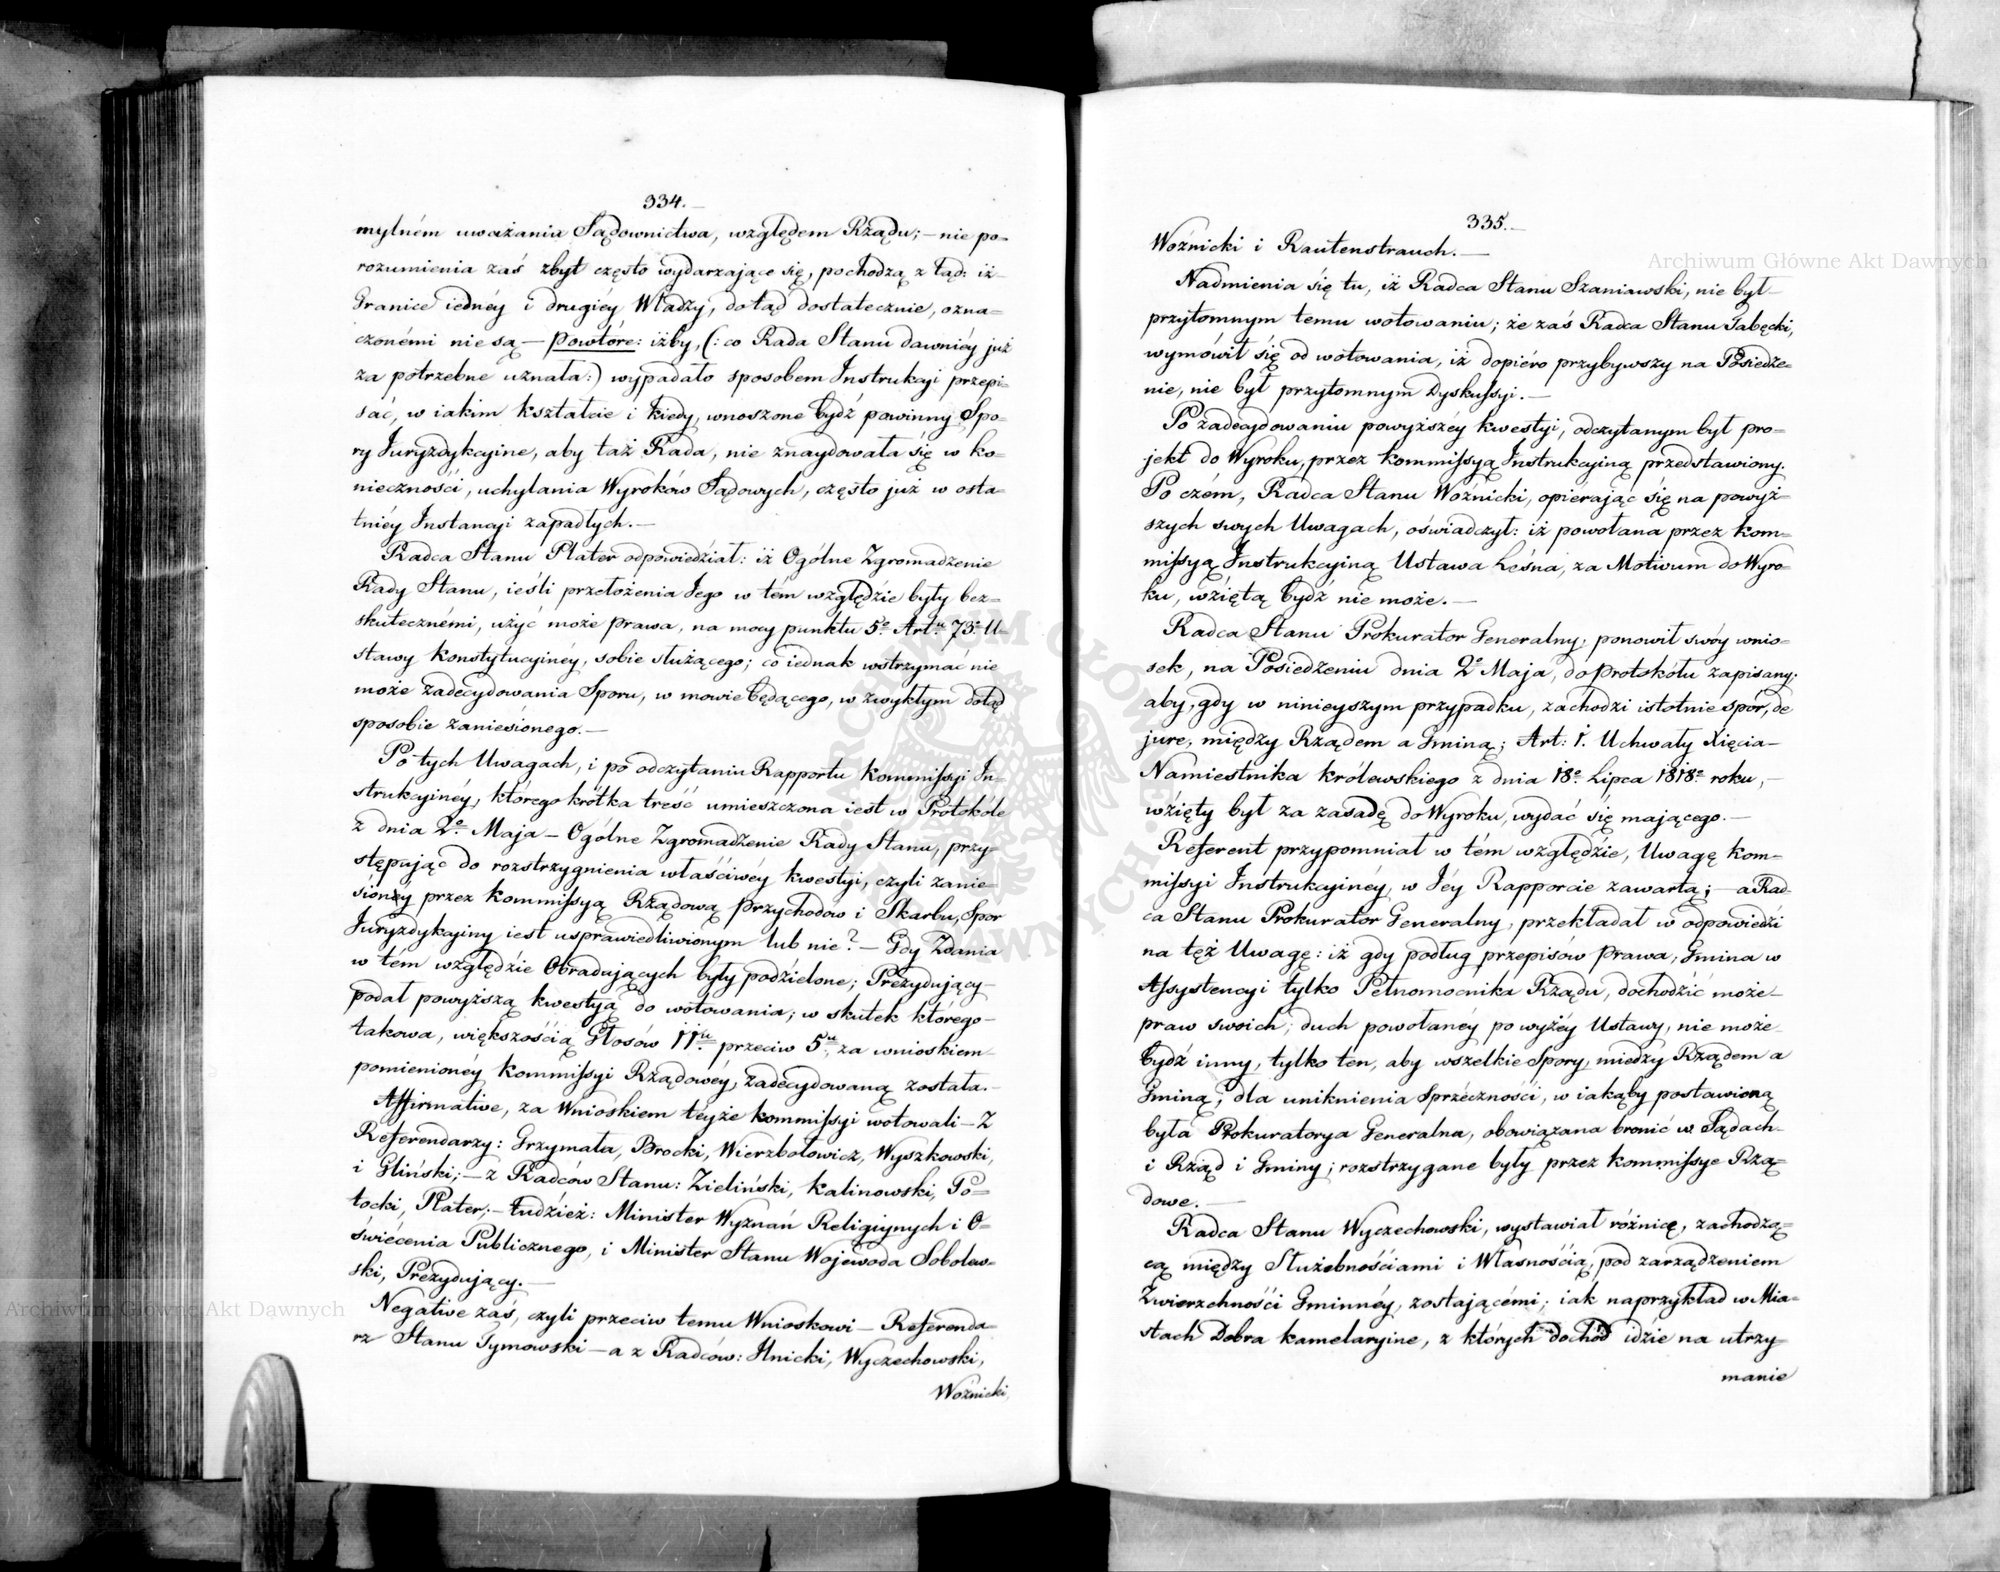 334.—
mylném uważania Sądownictwa, względem Rządu; — nie po=
rozumienia zaś zbyt często wydarzające się, pochodzą z tąd: iż
Granice iednéy i drugiéy Władzy, dotąd dostatecznie, ozna=
czonémi nie są — Powtóre: iżby, (: co Rada Stanu dawniéy już
za potrzebne uznała :) wypadało sposobem Instrukcyi przepi=
sać, w iakim kształcie i kiedy, wnoszone bydź powinny Spo=
ry Juryzdykcyine, aby taż Rada, nie znaydowała się w ko=
nieczności, uchylania Wyroków Sądowych, często już w osta=
tniéy Instancyi zapadłych. —
Radca Stanu Plater odpowiedział: iż Ogólne Zgromadzenie
Rady Stanu, ieśli przełożenia Jego w tém względzie były bez=
skutecznémi, użyć może prawa, na mocy punktu 5º Artu 73º U=
stawy Konstytucyinéy, sobie służącego; co iednak wstrzymać nie
może zadecydowania Sporu, w mowie będącego, w zwykłym dotąd
sposobie zaniesionego. —
Po tych Uwagach, i po odczytaniu Rapportu Kommissyi In=
strukcyinéy, którego krótka treść umieszczona iest w Protokóle
z dnia 2º Maja — Ogólne Zgromadzenie Rady Stanu, przy=
stępując do rozstrzygnienia właściwéy kwestyi, czyli zanie=
siony przez Kommissyą Rządową Przychodow i Skarbu, Spor
Juryzdykcyiny iest usprawiedliwionym lub nie? — Gdy Zdania
w tém względzie Obradujących były podzielone; Prezydujący
podał powyższą kwestyą do wotowania; w skutek którego
takowa, większością Głosów 11u przeciw 5u, za wnioskiem
pomienionéy Kommissyi Rządowéy, zadecydowaną została. —
Affirmative, za Wnioskiem téyże Kommissyi wotowali — Z
Referendarzy: Grzymała, Brocki, Wierzbołowicz, Wyszkowski,
i Gliński; — z Radców Stanu: Zieliński, Kalinowski, Po=
tocki, Plater; — tudzież: Minister Wyznań Religiynych i O=
świécenia Publicznego, i Minister Stanu Wojewoda Sobolew=
ski, Prezydujący. —
Negative zaś, czyli przeciw temu Wnioskowi — Referenda=
rz Stanu Tymowski — a z Radców: Ilnicki, Wyczechowski,
Woźnicki
335.—
Woźnicki i Rautenstrauch. —
Nadmienia się tu, iż Radca Stanu Szaniawski, nie był
przytomnym temu wotowaniu; że zaś Radca Stanu Tabęcki,
wymówił się od wotowania, iż dopiéro przybywszy na Posiedze=
nie, nie był przytomnym Dyskussyi. —
Po zadecydowaniu powyższéy kwestyi, odczytanym był pro=
jekt do Wyroku, przez Kommissyą Instrukcyiną przedstawiony.
Po czém, Radca Stanu Woźnicki, opierając się na powyż=
szych swych Uwagach, oświadczył: iż powołana przez Kom=
missyą Instrukcyiną Ustawa Leśna, za Motivum do Wyro=
ku, wziętą bydź nie może. —
Radca Stanu Prokurator Generalny, ponowił swóy wnio=
sek, na Posiedzeniu dnia 2º Maja, do Protokółu zapisany:
aby, gdy w ninieyszym przypadku, zachodzi istotnie spór, de
jure, między Rządem a Gminą; Art: 1. Uchwały Xięcia
Namiestnika Królewskiego z dnia 18º Lipca 1818º roku, —
wzięty był za zasadę do Wyroku, wydać się mającego. —
Referent przypomniał w tém względzie, Uwagę Kom=
missyi Instrukcyinéy, w Jéy Rapporcie zawartą; — a Rad=
ca Stanu Prokurator Generalny, przekładał w odpowiedzi
na tęż Uwagę: iż gdy podług przepisów Prawa, Gmina w
Assystencyi tylko Pełnomocnika Rządu, dochodzić może
praw swoich, duch powołanéy powyżéy Ustawy, nie może
bydź inny, tylko ten, aby wszelkie Spory, miedzy Rządem a
Gminą, dla uniknienia Sprzéczności, w iakąby postawioną
była Prokuratorya Generalna, obowiązana bronić w Sądach
i Rząd i Gminy; rozstrzygane były przez Kommissye Rzą=
dowe. —
Radca Stanu Wyczechowski, wystawiał różnicę, zachodzą=
cą między Służebnościami i Własnością, pod zarządzeniem
Zwierzchności Gminnéy, zostającémi; iak naprzykład w Mia=
stach Dobra kamelaryine, z których dochód idzie na utrzy=
manie
Archiwum Główne Akt Dawnych
Archiwum Główne Akt Dawnych
ARCHIWUM GŁÓWNE AKT DAWNYCH